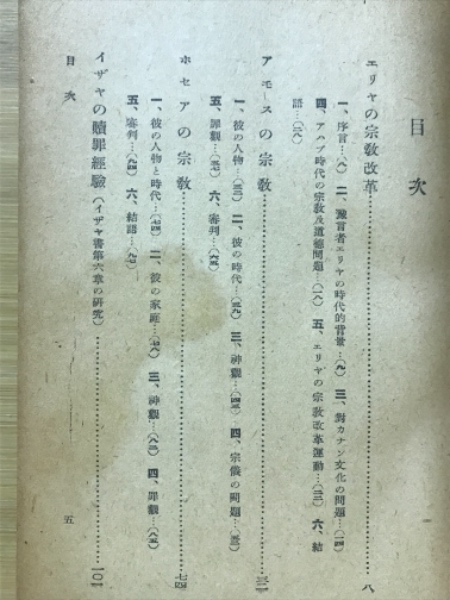 目次
エリヤの宗教改革…………八
一、序言…(八) 二、豫言者エリヤの時代的背景…(九) 三、對カナン文化の問題…(一四)
四、アハブ時代の宗教及道德問題…(一八) 五、エリヤの宗教改革運動…(二三) 六、結
語…(二八)
アモースの宗教…………三二
一、彼の人物…(三二) 二、彼の時代…(三九) 三、神觀…(四三) 四、宗儀の問題…(五三)
五、罪觀…(五七) 六、審判…(六五)
ホセアの宗教…………七四
一、彼の人物と時代…(七四) 二、彼の家庭…(七八) 三、神觀…(八三) 四、罪觀…(八五)
五、審判…(九四) 六、結語…(九七)
イザヤの贖罪經驗(イザヤ書第六章の研究)…………一〇一
目次
五